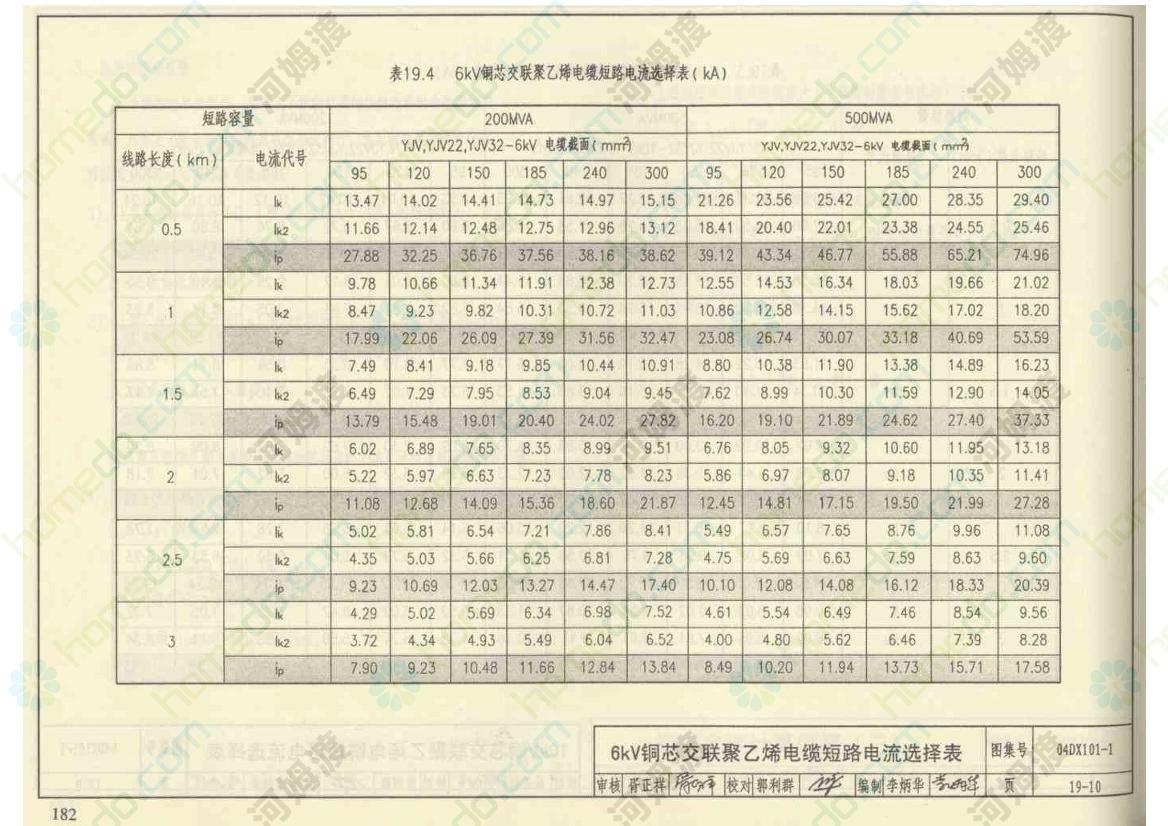 表19.4 6kV铜芯交联聚乙烯电缆短路电流选择表(kA)
短路容量 200MVA 500MVA
线路长度(km) 电流代号 YJV,YJV22,YJV32-6kV 电缆截面(mm²) YJV,YJV22,YJV32-6kV 电缆截面(mm²)
95 120 150 185 240 300 95 120 150 185 240 300
0.5 Ik 13.47 14.02 14.41 14.73 14.97 15.15 21.26 23.56 25.42 27.00 28.35 29.40
Ik2 11.66 12.14 12.48 12.75 12.96 13.12 18.41 20.40 22.01 23.38 24.55 25.46
ip 27.88 32.25 36.76 37.56 38.16 38.62 39.12 43.34 46.77 55.88 65.21 74.96
1 Ik 9.78 10.66 11.34 11.91 12.38 12.73 12.55 14.53 16.34 18.03 19.66 21.02
Ik2 8.47 9.23 9.82 10.31 10.72 11.03 10.86 12.58 14.15 15.62 17.02 18.20
ip 17.99 22.06 26.09 27.39 31.56 32.47 23.08 26.74 30.07 33.18 40.69 53.59
1.5 Ik 7.49 8.41 9.18 9.85 10.44 10.91 8.80 10.38 11.90 13.38 14.89 16.23
Ik2 6.49 7.29 7.95 8.53 9.04 9.45 7.62 8.99 10.30 11.59 12.90 14.05
ip 13.79 15.48 19.01 20.40 24.02 27.82 16.20 19.10 21.89 24.62 27.40 37.33
2 Ik 6.02 6.89 7.65 8.35 8.99 9.51 6.76 8.05 9.32 10.60 11.95 13.18
Ik2 5.22 5.97 6.63 7.23 7.78 8.23 5.86 6.97 8.07 9.18 10.35 11.41
ip 11.08 12.68 14.09 15.36 18.60 21.87 12.45 14.81 17.15 19.50 21.99 27.28
2.5 Ik 5.02 5.81 6.54 7.21 7.86 8.41 5.49 6.57 7.65 8.76 9.96 11.08
Ik2 4.35 5.03 5.66 6.25 6.81 7.28 4.75 5.69 6.63 7.59 8.63 9.60
ip 9.23 10.69 12.03 13.27 14.47 17.40 10.10 12.08 14.08 16.12 18.33 20.39
3 Ik 4.29 5.02 5.69 6.34 6.98 7.52 4.61 5.54 6.49 7.46 8.54 9.56
Ik2 3.72 4.34 4.93 5.49 6.04 6.52 4.00 4.80 5.62 6.46 7.39 8.28
ip 7.90 9.23 10.48 11.66 12.84 13.84 8.49 10.20 11.94 13.73 15.71 17.58
6kV铜芯交联聚乙烯电缆短路电流选择表 图集号 04DX101-1
审核 胥正祥 校对 郭利群 编制 李炳华 页 19-10
182
homedo.com 河姆渡